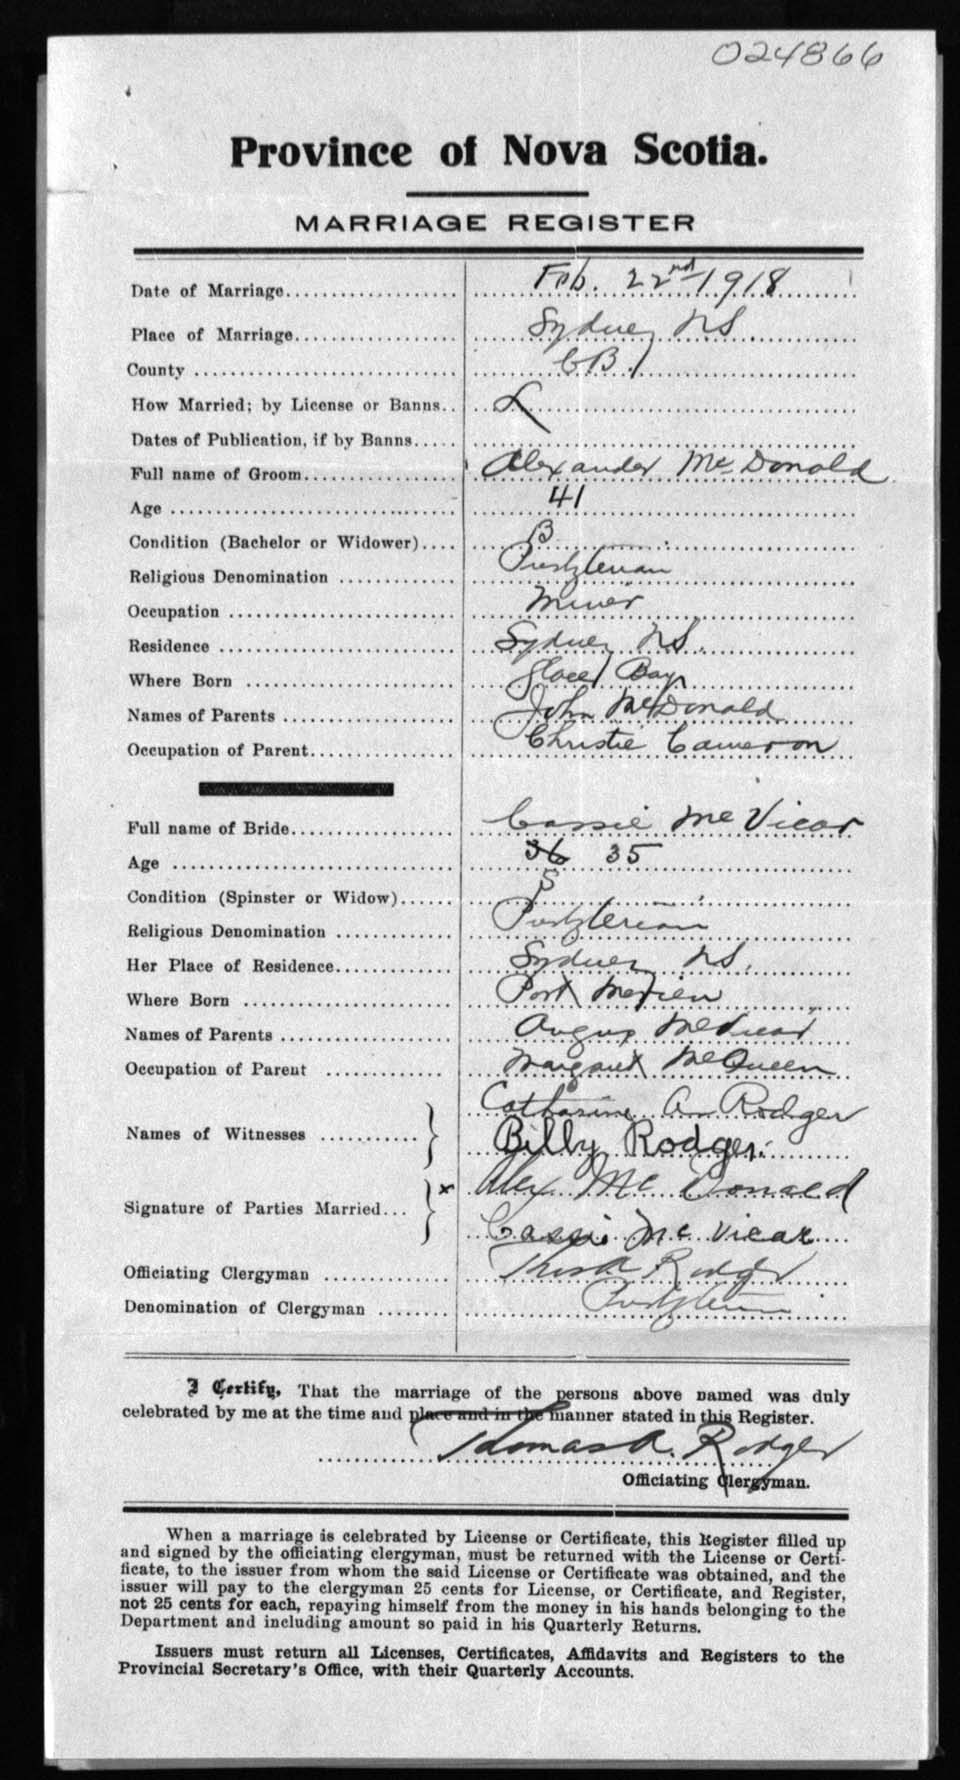 024866
Province of Nova Scotia.
MARRIAGE REGISTER
Date of Marriage Feb. 22nd 1918
Place of Marriage Sydney NS.
County CB.
How Married; by License or Banns L
Dates of Publication, if by Banns
Full name of Groom Alexander McDonald
Age 41
Condition (Bachelor or Widower) B
Religious Denomination Presbyterian
Occupation Miner
Residence Sydney NS.
Where Born Glace Bay
Names of Parents John McDonald
Occupation of Parent Christie Cameron
Full name of Bride Cassie McVicar
Age 36 35
Condition (Spinster or Widow) S
Religious Denomination Presbyterian
Her Place of Residence Sydney NS.
Where Born Port Morien
Names of Parents Angus McVicar
Occupation of Parent Margaret McQueen
Catharine A Rodger
Names of Witnesses
Billy Rodger.
x Alex McDonald
Signature of Parties Married
Cassie McVicar
Officiating Clergyman Thos A Rodger
Denomination of Clergyman Presbyterian
I Certify, That the marriage of the persons above named was duly
celebrated by me at the time and place and in the manner stated in this Register.
Thomas A. Rodger
Officiating Clergyman.
When a marriage is celebrated by License or Certificate, this Register filled up
and signed by the officiating clergyman, must be returned with the License or Certi-
ficate, to the issuer from whom the said License or Certificate was obtained, and the
issuer will pay to the clergyman 25 cents for License, or Certificate, and Register,
not 25 cents for each, repaying himself from the money in his hands belonging to the
Department and including amount so paid in his Quarterly Returns.
Issuers must return all Licenses, Certificates, Affidavits and Registers to the
Provincial Secretary's Office, with their Quarterly Accounts.